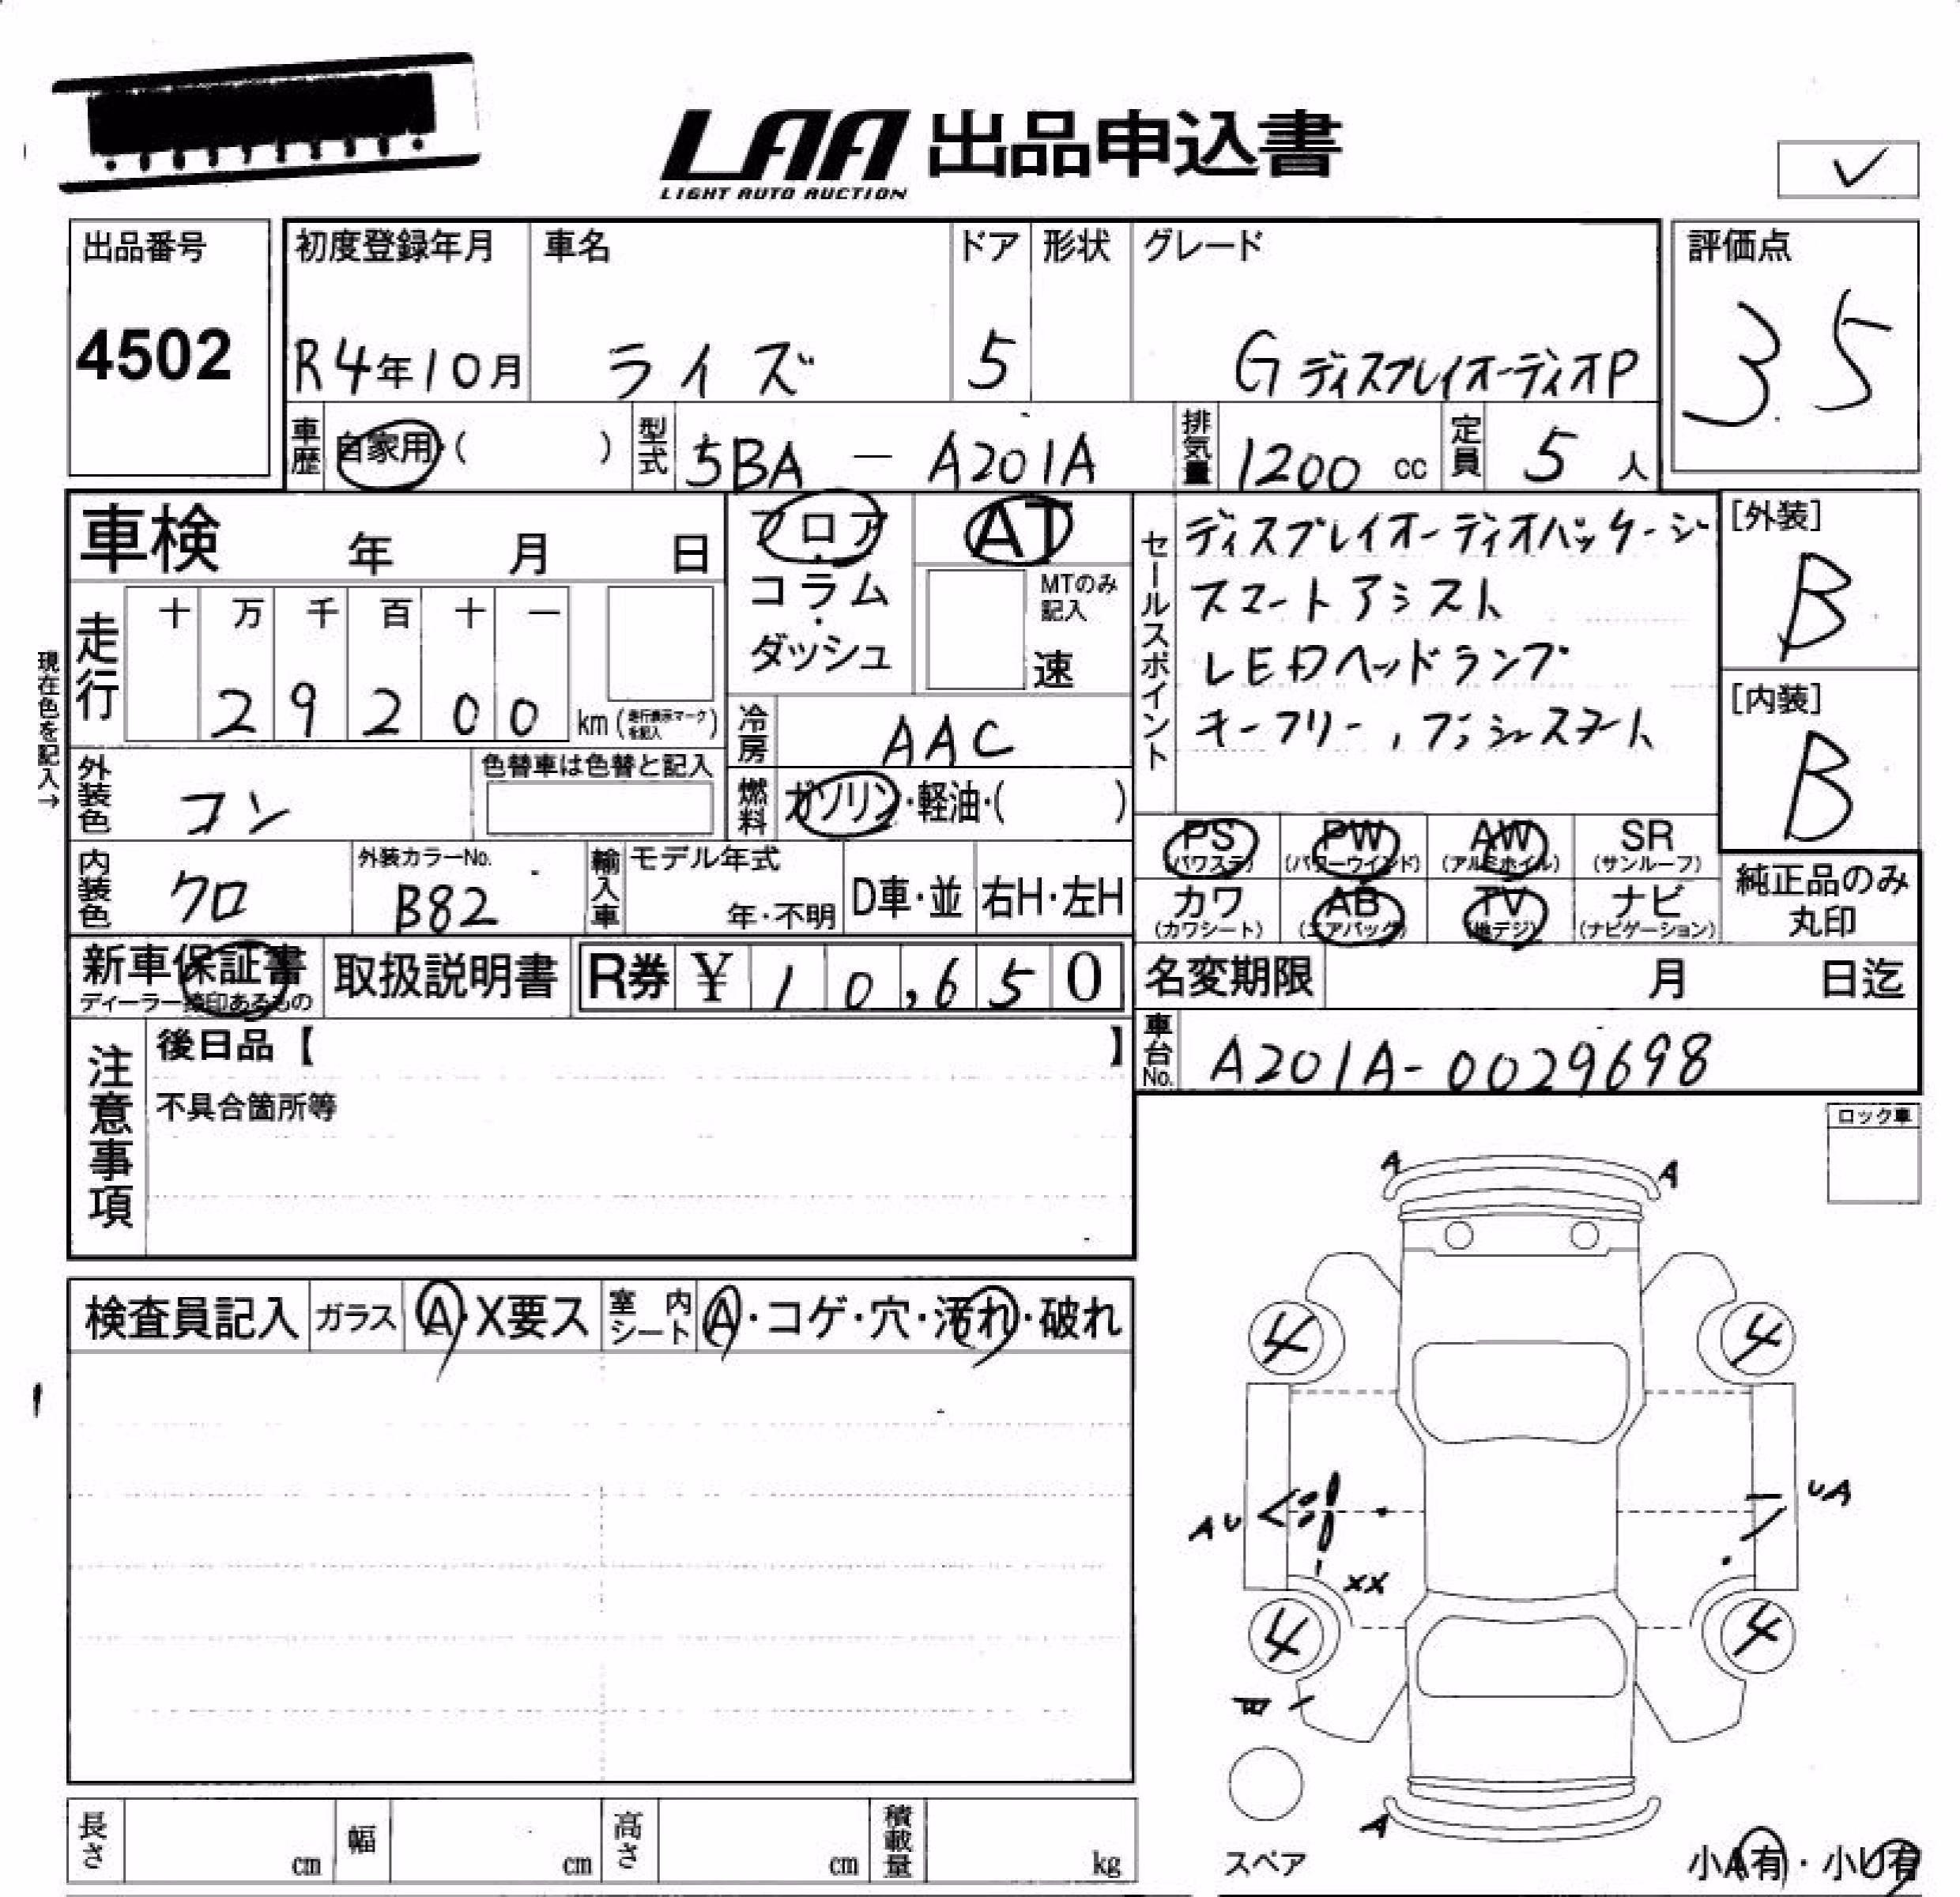 LAA 出品申込書
LIGHT AUTO AUCTION
✓
出品番号 初度登録年月 車名 ドア 形状 グレード 評価点
4502 R4年10月 ライズ 5 GディスプレイオーディオP 3.5
車歴 自家用・( ) 型式 5BA - A201A 排気量 1200 cc 定員 5 人
車検 年 月 日
フロア・コラム・ダッシュ
AT
MTのみ記入
速
セールスポイント
ディスプレイオーディオパッケージ
スマートアシスト
LEDヘッドランプ
キーフリー,プッシュスタート
[外装]
B
[内装]
B
現在色を記入→
走行 十 万 千 百 十 一
29200 km(走行表示マークを記入)
冷房 AAC
外装色 コン 色替車は色替と記入
燃料 ガソリン・軽油・( )
PS (パワステ) PW (パワーウインド) AW (アルミホイル) SR (サンルーフ)
カワ (カワシート) AB (エアバッグ) TV (地デジ) ナビ (ナビゲーション)
純正品のみ丸印
内装色 クロ 外装カラーNo. B82 輸入車 モデル年式 年・不明 D車・並 右H・左H
新車保証書 取扱説明書 R券 ¥ 10,650
ディーラー捺印あるもの
名変期限 月 日迄
車台No. A201A-0029698
注意事項
後日品【 】
不具合箇所等
ロック車
A A
検査員記入 ガラス A・X要ス 室内シート A・コゲ・穴・汚れ・破れ
4 4
AU UA
XX
4 4
A
スペア
小A有・小U有
長さ cm 幅 cm 高さ cm 積載量 kg